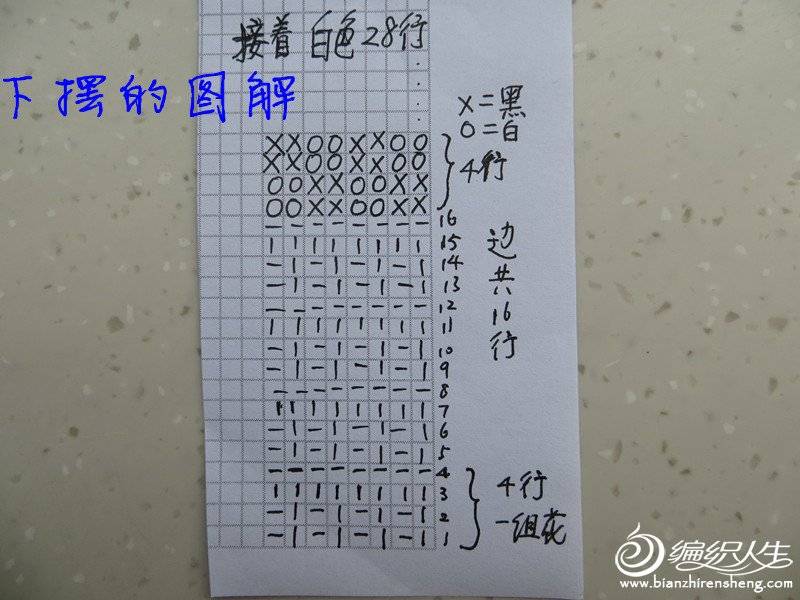 接着 白色28行
下摆的图解
X=黑
O=白
XXOOXXOO
XXOOXXOO
4行
OOXXOOXX
OOXXOOXX
— — — — — — — — 16
| | | | | | | | 15
— | — | — | — | 14
— | — | — | — | 13
— — — — — — — — 12
| | | | | | | | 11
— | — | — | — | 10
— | — | — | — | 9
— — — — — — — — 8
| | | | | | | | 7
— | — | — | — | 6
— | — | — | — | 5
— — — — — — — — 4
| | | | | | | | 3
— | — | — | — | 2
— | — | — | — | 1
边共16行
4行
一组花
编织人生
www.bianzhirensheng.com